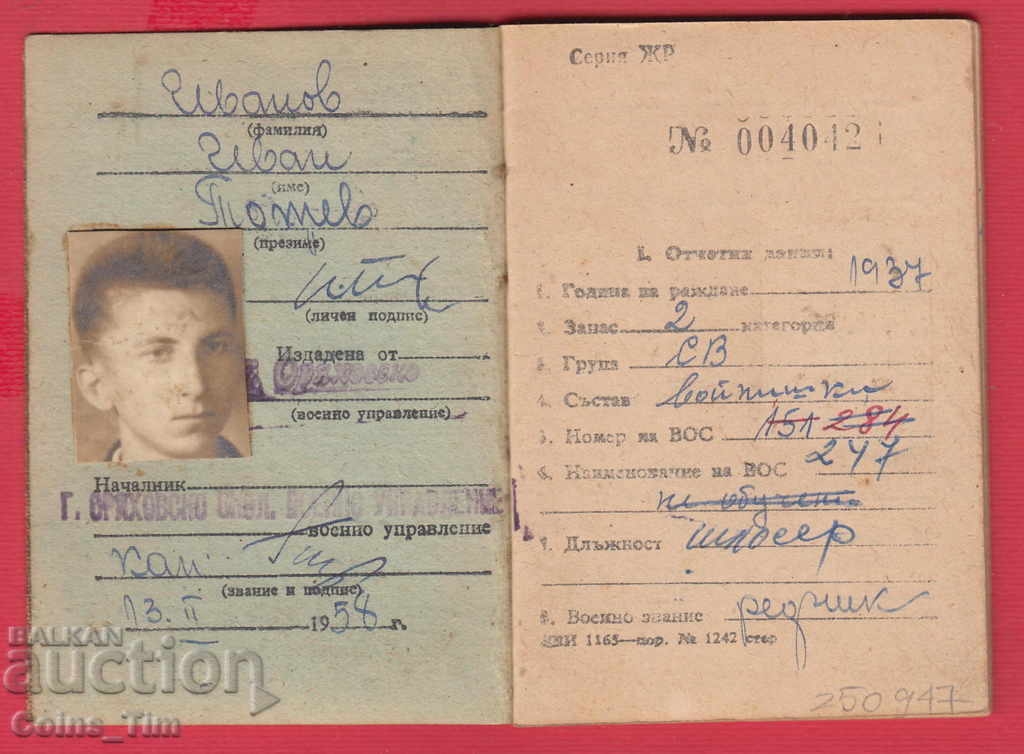 Иванов
(фамилия)
Иван
(име)
Тотев
(презиме)
(личен подпис)
Издадена от
Оряховско
(военно управление)
Началник
Г. ОРЯХОВСКО ОКОЛ. ВОЕННО УПРАВЛЕНИЕ
военно управление
Кап
(звание и подпис)
13. II 1958 г.
Серия ЖР
№ 004042
I. Отчетни данни:
1. Година на раждане 1937
2. Запас 2 категория
3. Група СВ
4. Състав войнишки
5. Номер на ВОС 151 284
247
6. Наименование на ВОС
не обучен
7. Длъжност шлосер
8. Военно звание редник
1165—пор. № 1242 стер
250 947
BALKAN
auction
Coins_Tim